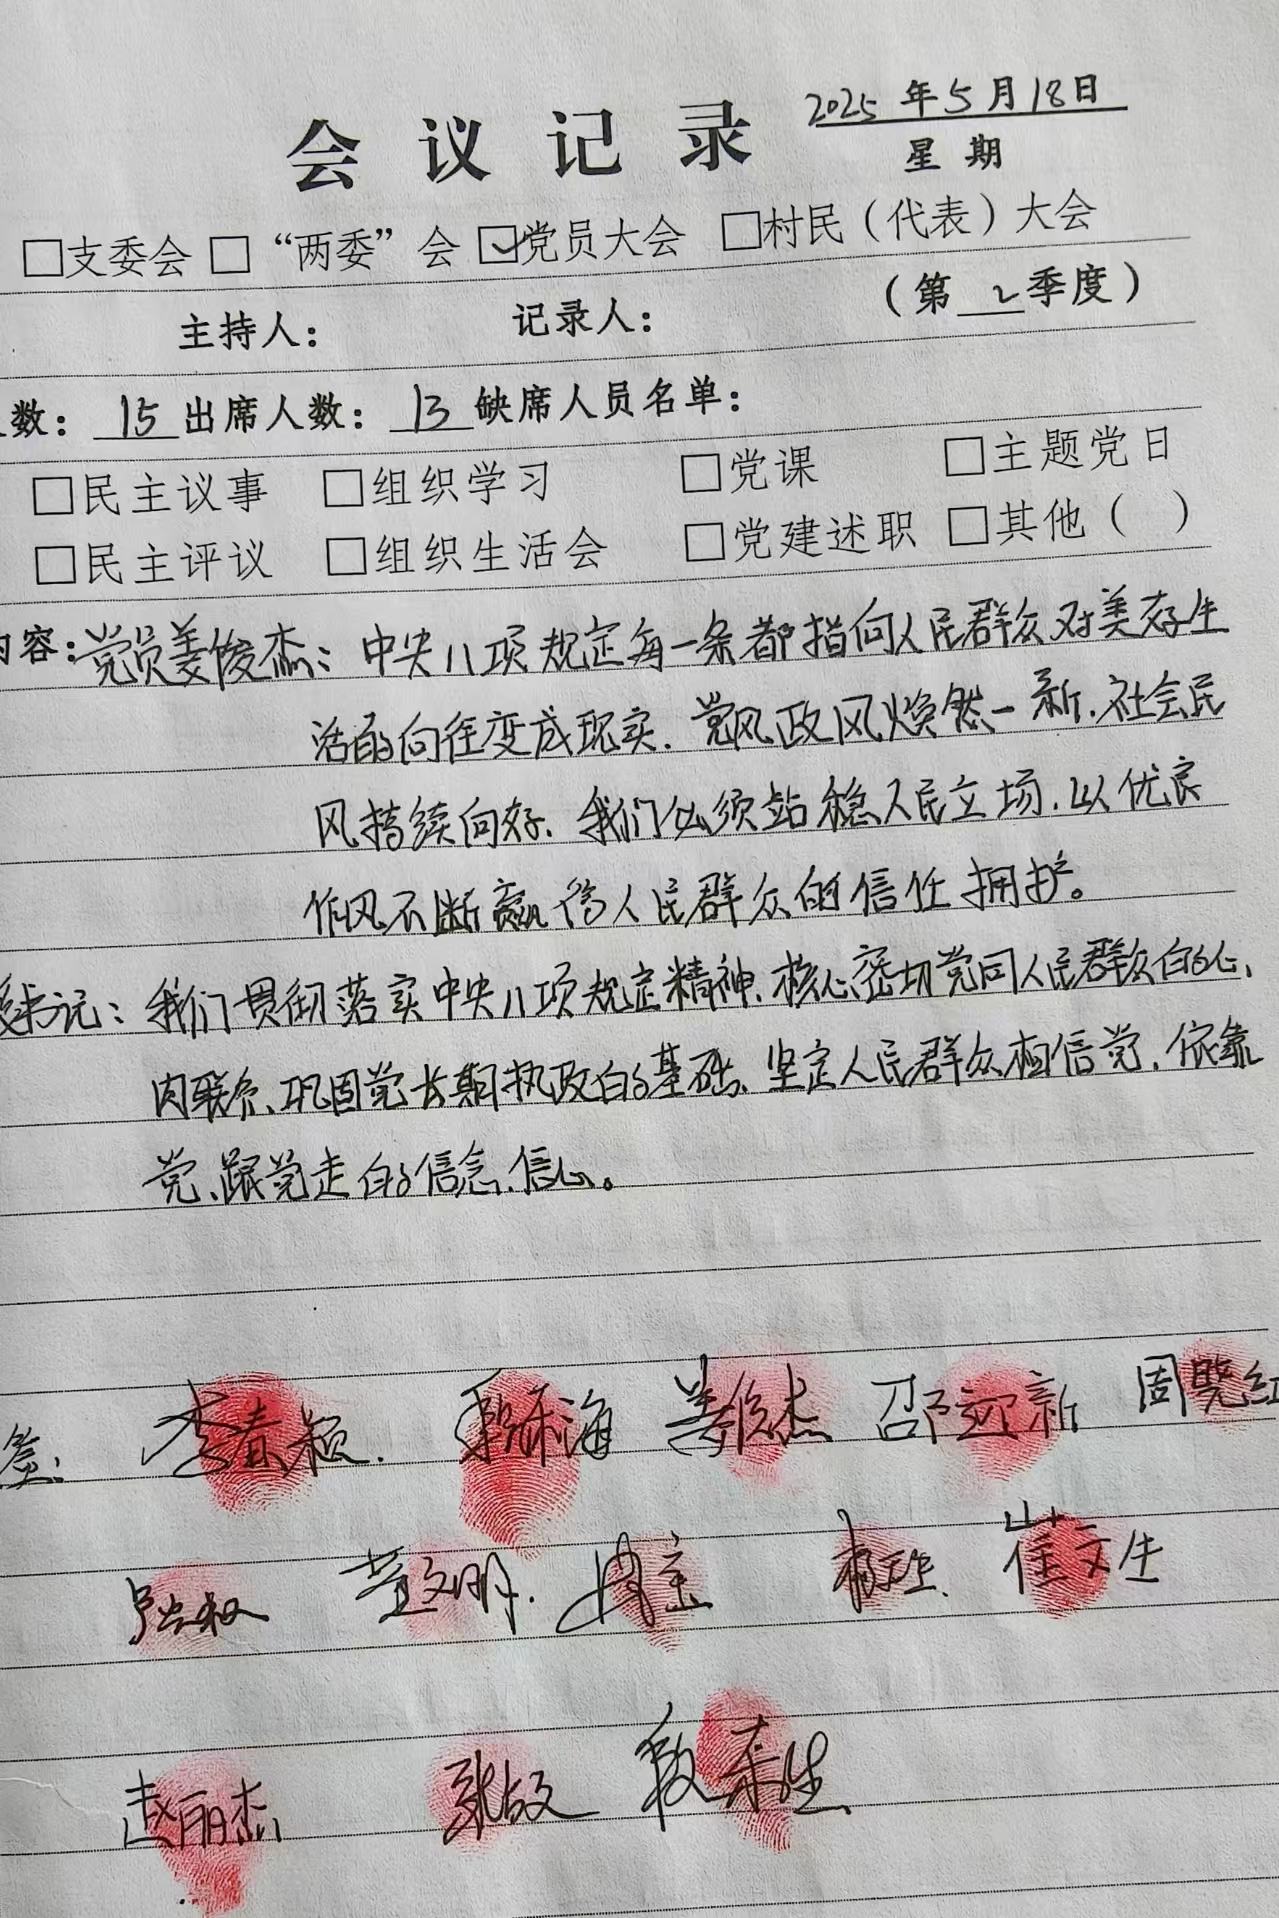 2025年5月18日
会议记录
星期
□支委会 □“两委”会 ☑党员大会 □村民（代表）大会
主持人： 记录人： （第2季度）
数：15出席人数：13缺席人员名单：
□民主议事 □组织学习 □党课 □主题党日
□民主评议 □组织生活会 □党建述职 □其他（ ）
内容：党员姜俊杰：中央八项规定每一条都指向人民群众对美好生
活的向往变成现实.党风政风焕然一新.社会民
风持续向好.我们必须站稳人民立场.以优良
作风不断赢得人民群众的信任拥护。
书记：我们贯彻落实中央八项规定精神、核心密切党同人民群众的心、
肉联系、巩固党长期执政的基础、坚定人民群众相信党.依靠
党、跟党走的信念、信心。
李春颖. 海 姜俊杰 邵迎新 周晓红
董文明. 崔文生
赵丽杰